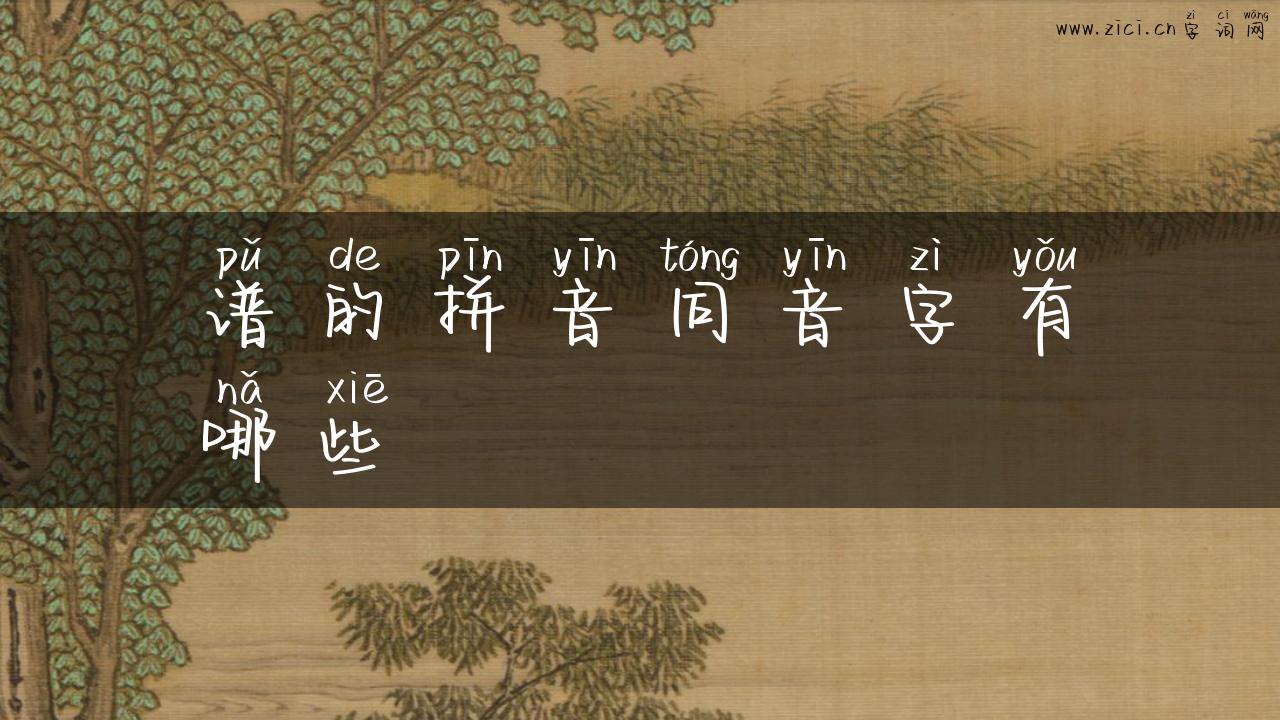 zì cí wǎng
www.zici.cn 字词网
pǔ de pīn yīn tóng yīn zì yǒu
谱的拼音同音字有
nǎ xiē
哪些